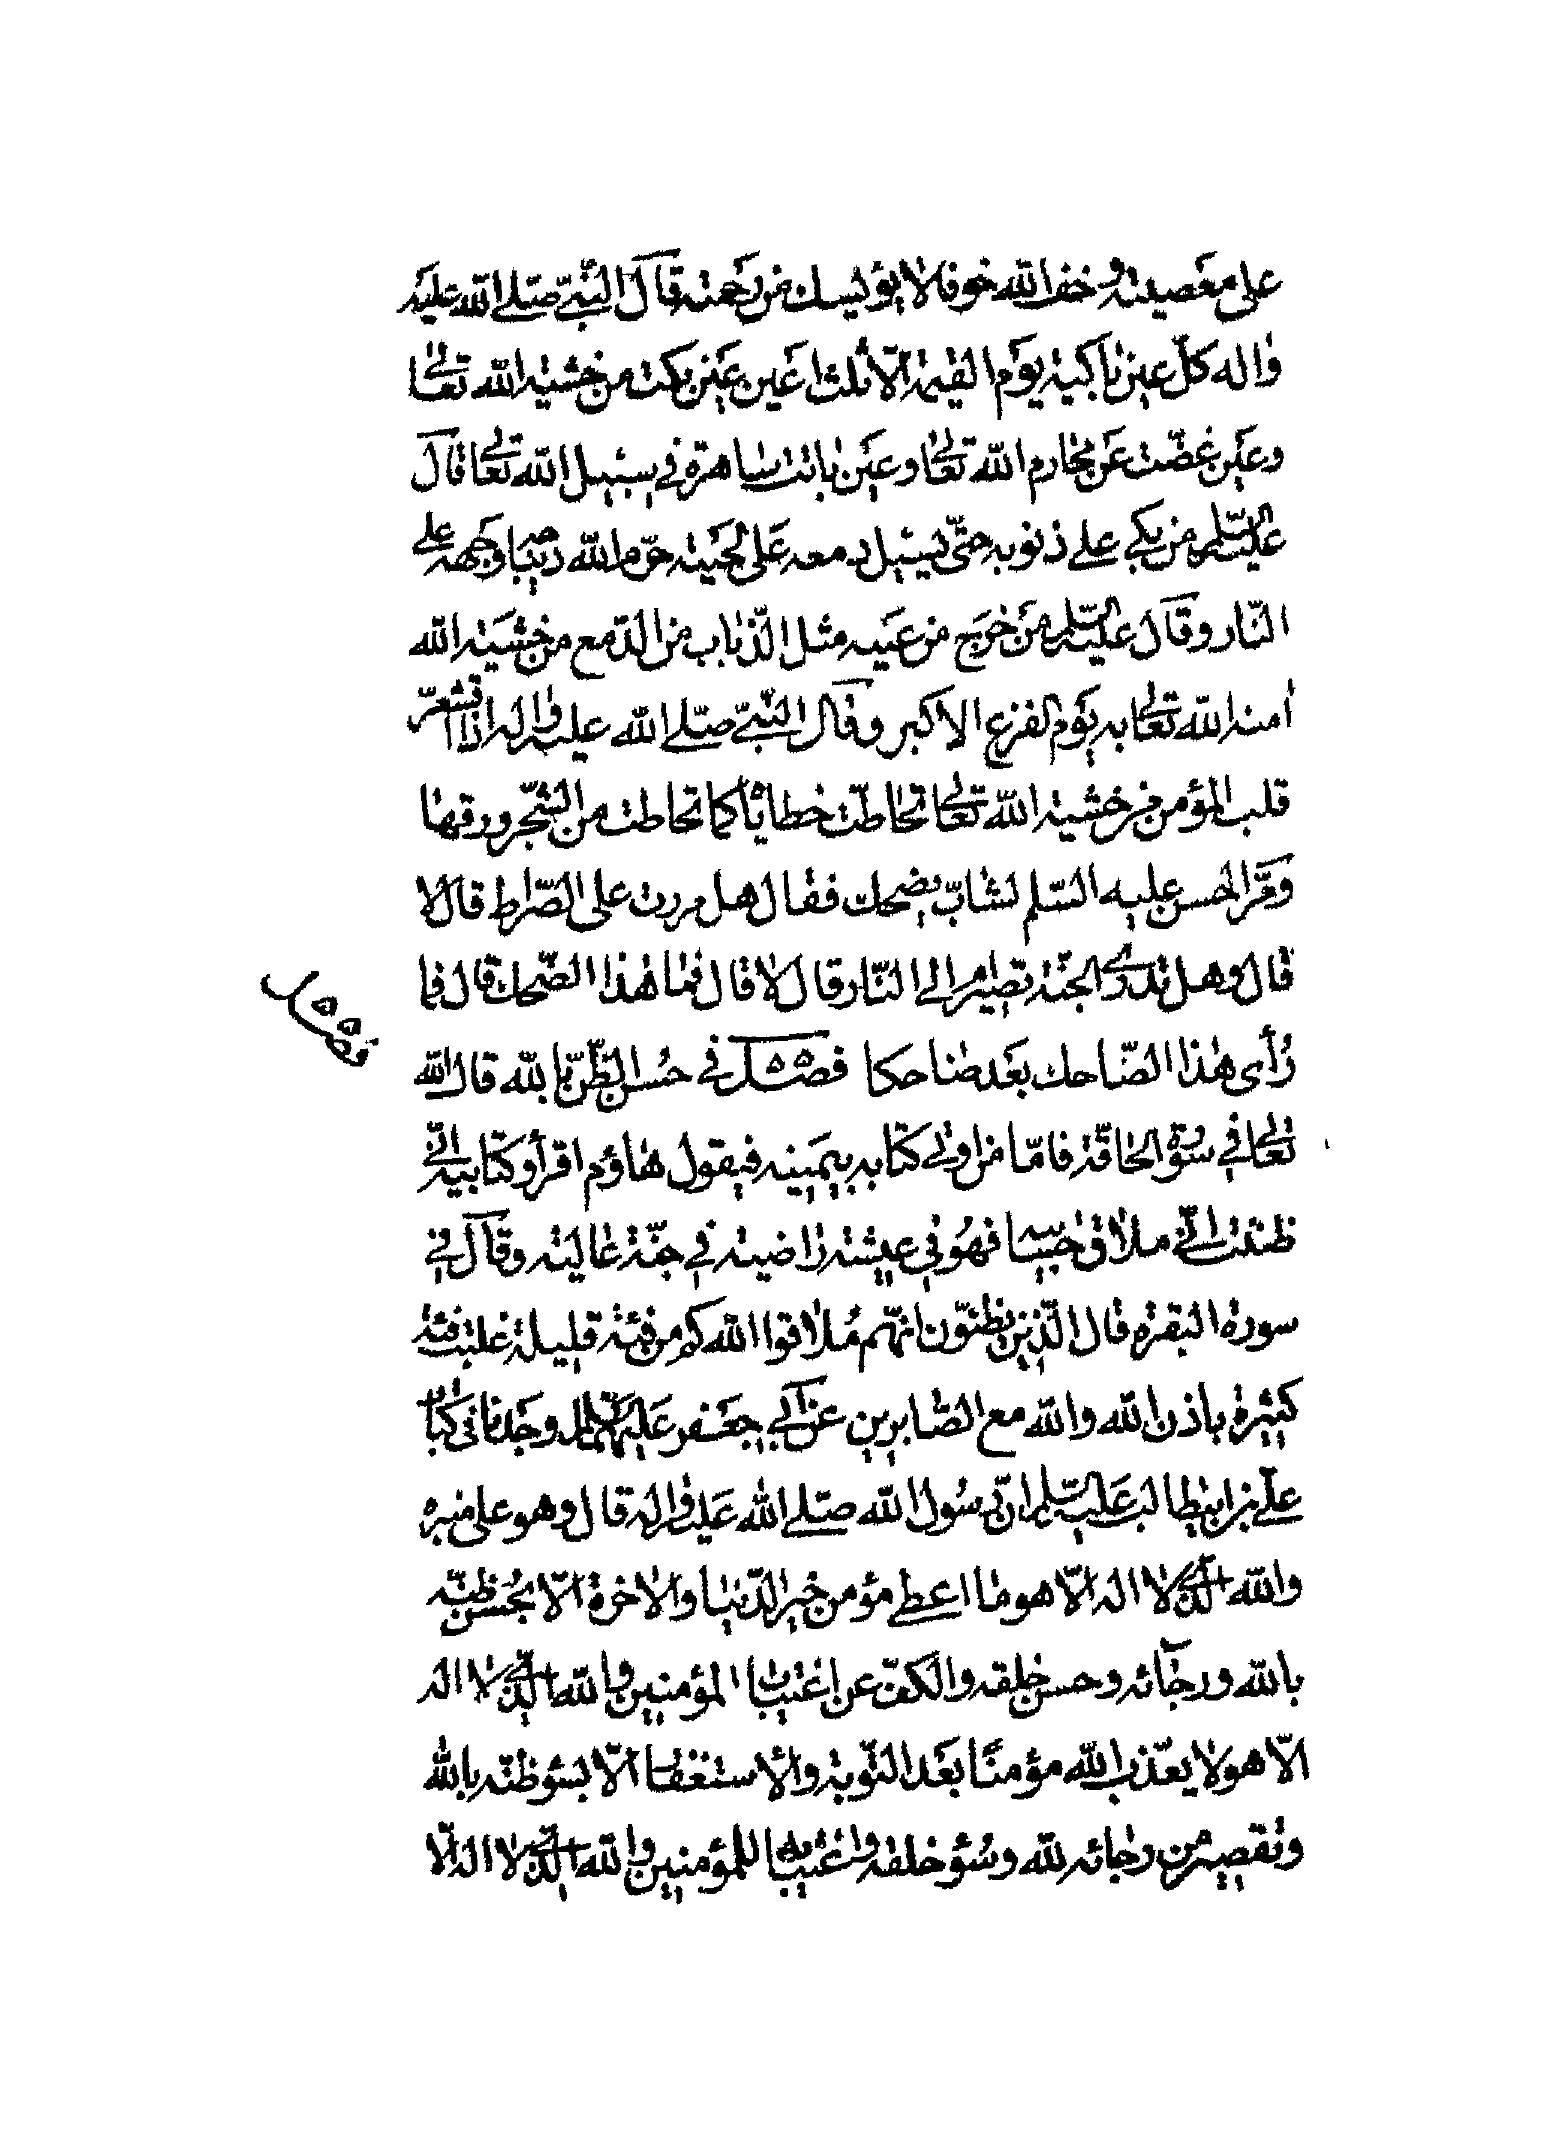 على معصيته وخف الله خوفا لا يؤيسك من رحمته قال النبي صلى الله عليه
واله كل عين باكية يوم القيمة الا ثلث اعين عين بكت من خشية الله تعالى
وعين غضت عن محارم الله تعالى وعين باتت ساهرة في سبيل الله تعالى قال
عليه السلم من بكى على ذنوبه حتى تسيل دمعه على لحيته حرم الله ديباجة وجهه على
النار وقال عليه السلم من خرج من عينيه مثل الذباب من الدمع من خشية الله
امنه الله تعالى به يوم الفزع الاكبر وقال النبي صلى الله عليه واله اذا اقشعر
قلب المؤمن من خشية الله تعالى تحاطت خطاياه كما تحاطت من الشجر ورقها
ومر الحسن عليه السلم لشاب يضحك فقال هل مررت على الصراط قال لا
قال وهل تدري الى الجنة تصير ام الى النار قال لا قال فما هذا الضحك قال فما
رأى هذا الضاحك بعد ضاحكا فصل في حسن الظن بالله قال الله
تعالى في سورة الحاقة فاما من اوتى كتابه بيمينه فيقول هاؤم اقرأو كتابيه انى
ظننت انى ملاق حسابيه فهو في عيشة راضية في جنة عالية وقال في
سورة البقرة قال الذين يظنون انهم ملاقوا الله كم من فئة قليلة غلبت فئة
كثيرة باذن الله والله مع الصابرين عن ابي جعفر عليه السلم قال وجدنا في كتاب
على بن ابيطالب عليه السلم ان رسول الله صلى الله عليه واله قال وهو على منبره
والله الذي لا اله الا هو ما اعطى مؤمن خير الدنيا والاخرة الا بحسن ظنه
بالله ورجائه وحسن خلقه والكف عن اغتياب المؤمنين والله الذي لا اله
الا هو لا يعذب الله مؤمنا بعد التوبة والاستغفار الا بسوء ظنه بالله
وتقصيره من رجائه لله وسوء خلقه واغتيابه للمؤمنين والله الذي لا اله الا